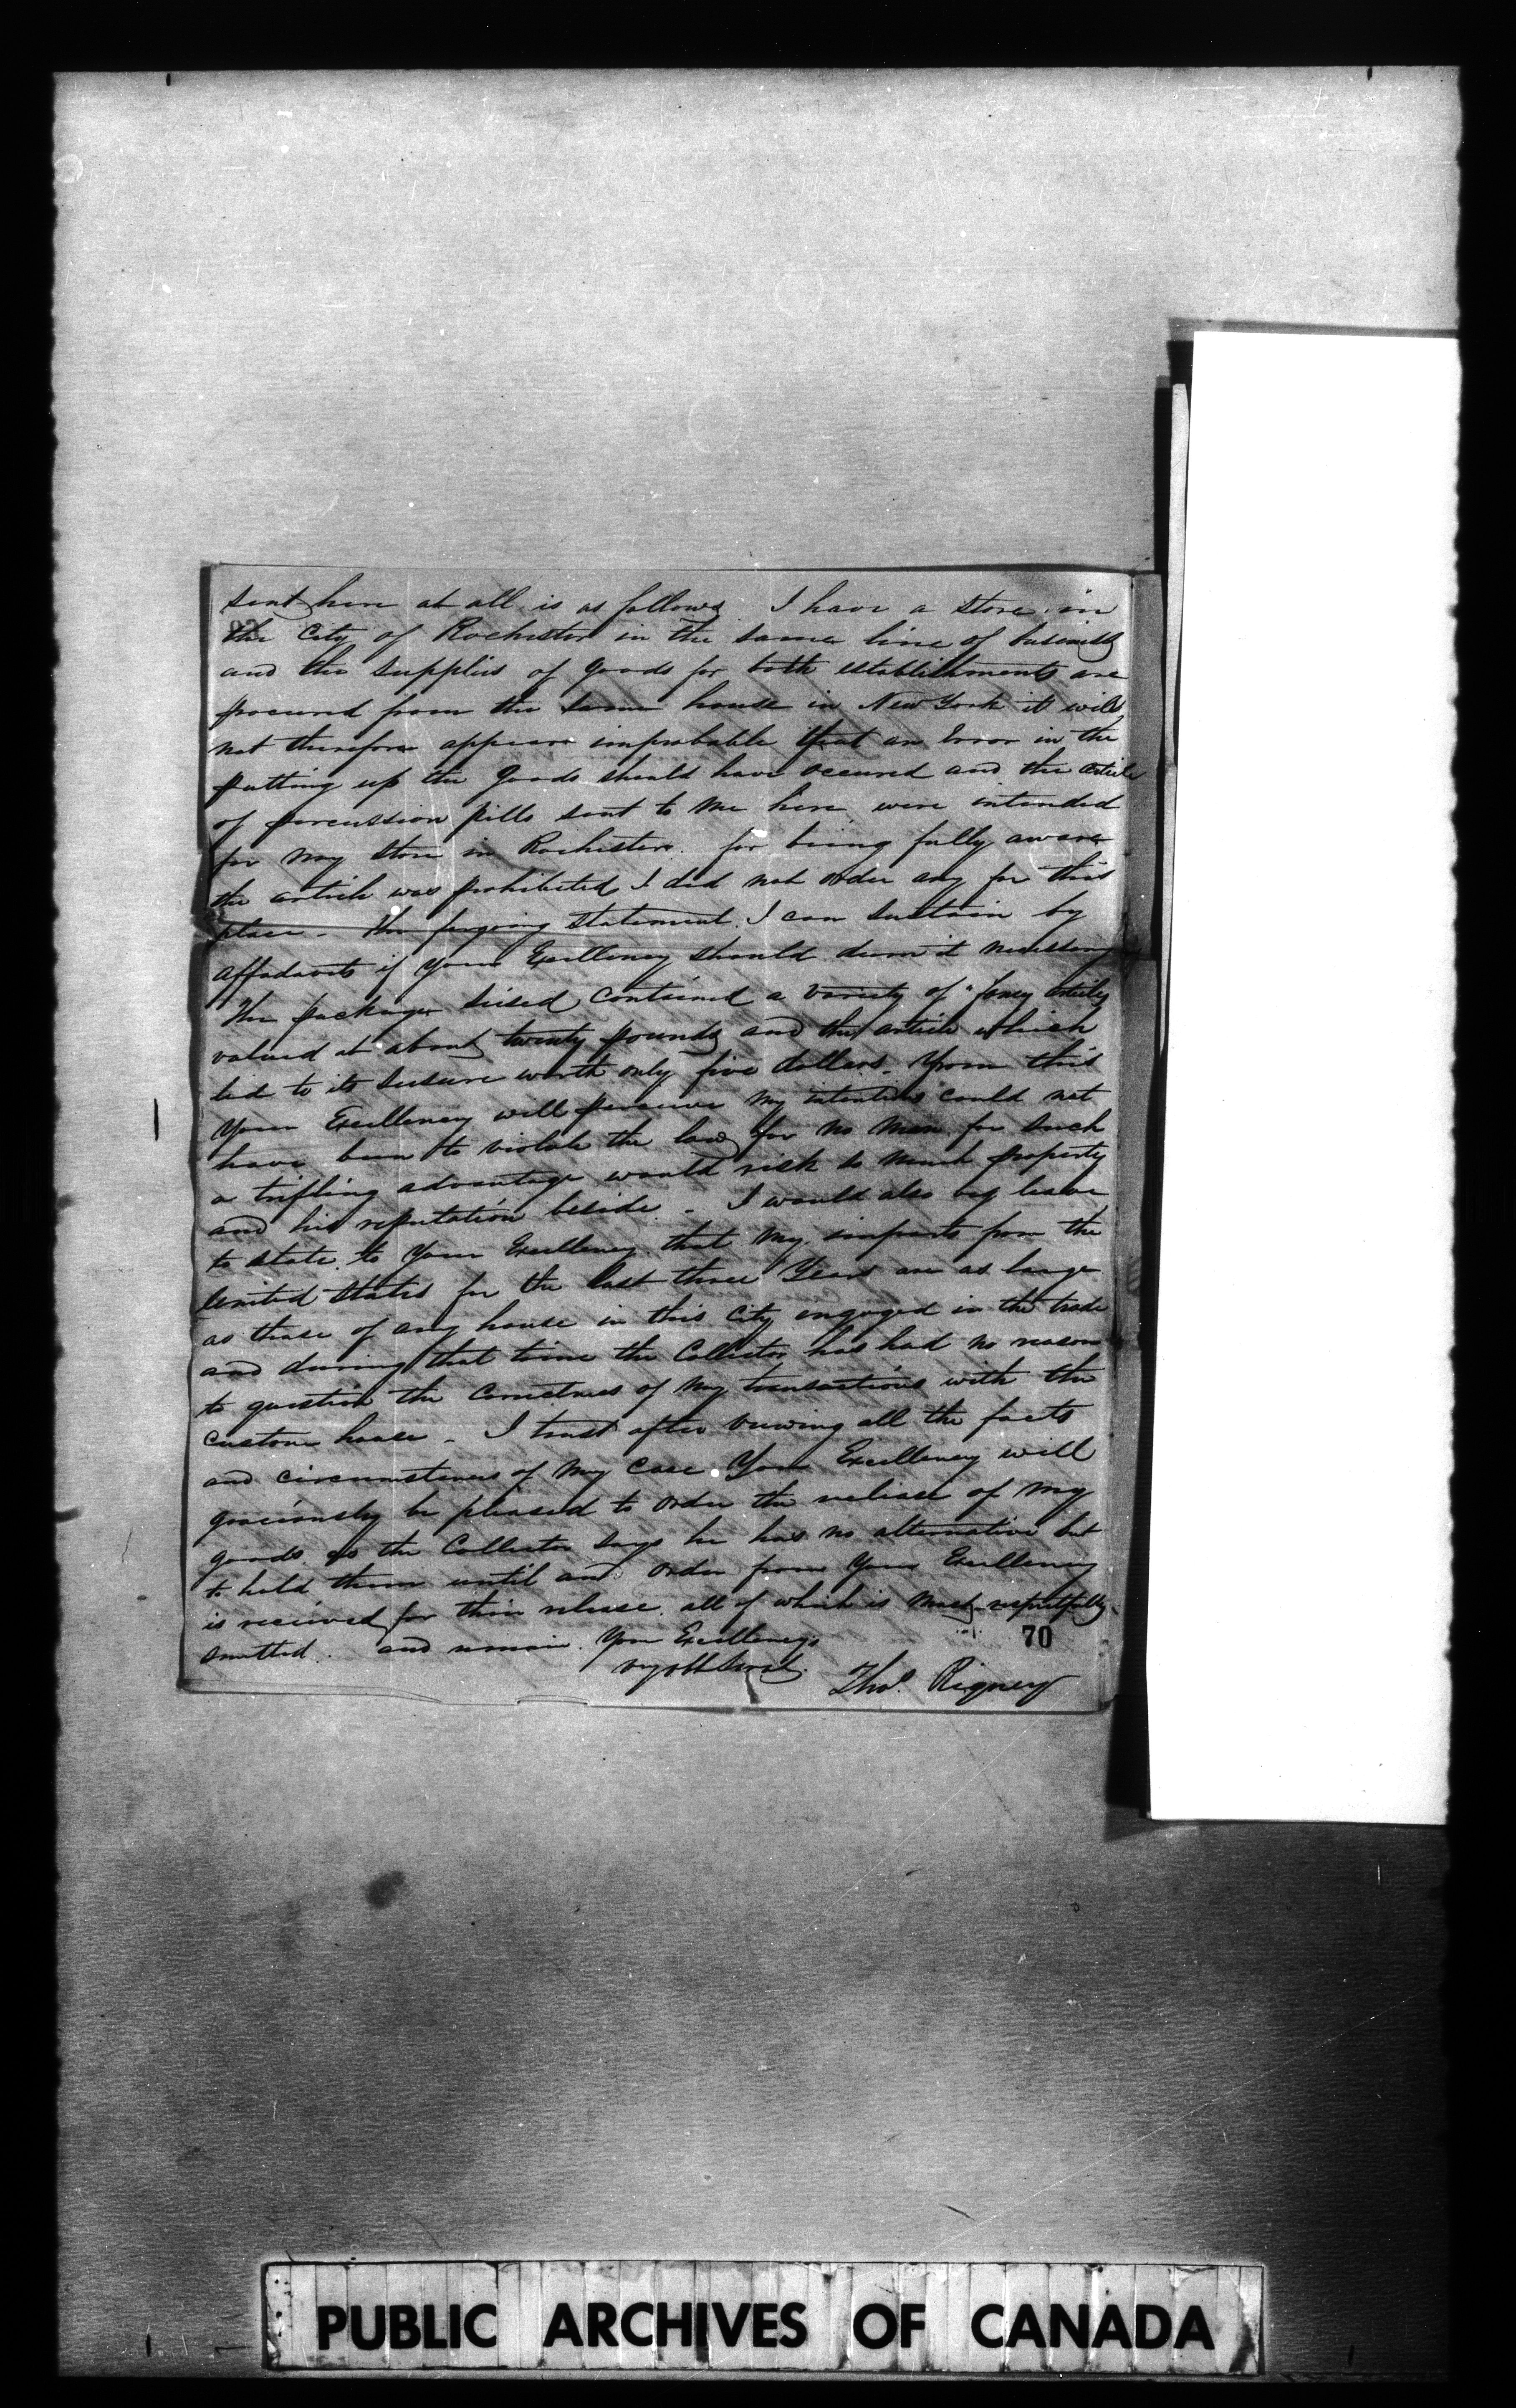 sent here at all is as follows I have a store in
the City of Rochester in the same line of business
and the supplies of goods for both establishments are
procured from the same house in New York it will
not therefore appear improbable that an Error in the
putting up the goods should have occured and the article
of percussion pills sent to me here were intended
for my store in Rochester. for being fully aware
the article was prohibited I did not order any for this
place - The forgoing statement I can sustain by
affadavits if your Excellency should deem it necessary
The package seised contained a variety of "fancy articles
valued at about twenty pounds and the article which
led to its seisure worth only five dollars - from this
Your Excellency will perceive my intentions could not
have been to violate the law for no man for such
a trifling advantage would risk so much property
and his reputation beside - I would also beg leave
to state to Your Excellency that my imports from the
United States for the last three Years are as large
as those of any house in this City engaged in the trade
and during that time the Collector has had no reason
to question the correctness of my transactions with the
custom house - I trust after viewing all the facts
and circumstances of my case Your Excellency will
graciously be pleased to order the release of my
goods as the Collector says he has no alternative but
to hold them until an order from Your Excellency
is received for their release. all of which is most respectfully
smitted. and remain Your Excellency's
70
Thos. Rigney
PUBLIC ARCHIVES OF CANADA